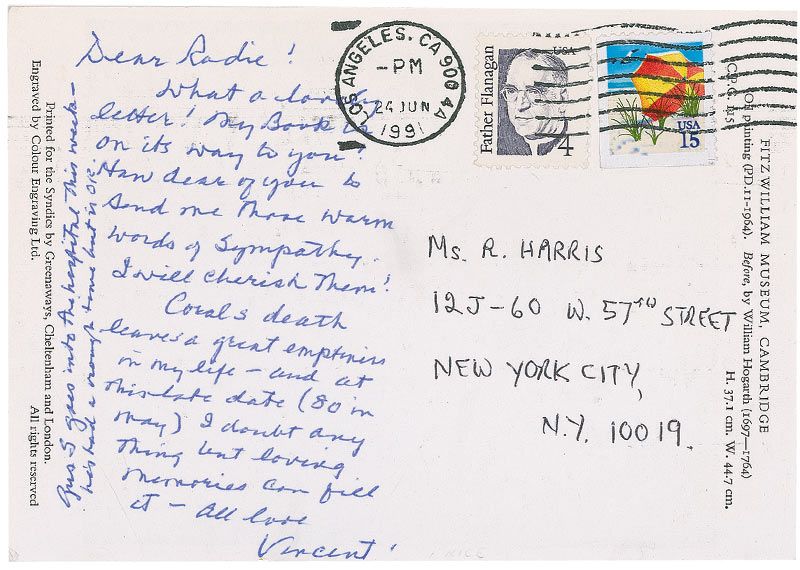 Dear Radie!
What a lovely
letter! My Book is
on its way to you!
How dear of you to
send me those warm
words of Sympathy.
I will cherish Them!
Coral's death
leaves a great emptiness
in my life – and at
this late date (80 in
May) I doubt any
thing but loving
memories can fill
it – all love
Vincent!
goes into the hospital this week –
has had a rough time but is OK.
Printed for the Syndics by Greenaways, Cheltenham and London.
Engraved by Colour Engraving Ltd. All rights reserved
LOS ANGELES, CA 900 44
– PM
24 JUN
1991
Father Flanagan
USA
4
USA
15
Ms. R. HARRIS
12J-60 W. 57TH STREET
NEW YORK CITY,
N.Y. 10019.
FITZWILLIAM MUSEUM, CAMBRIDGE
Oil painting (PD.11-1964). Before, by William Hogarth (1697–1764)
H. 37.1 cm. W. 44.7 cm.